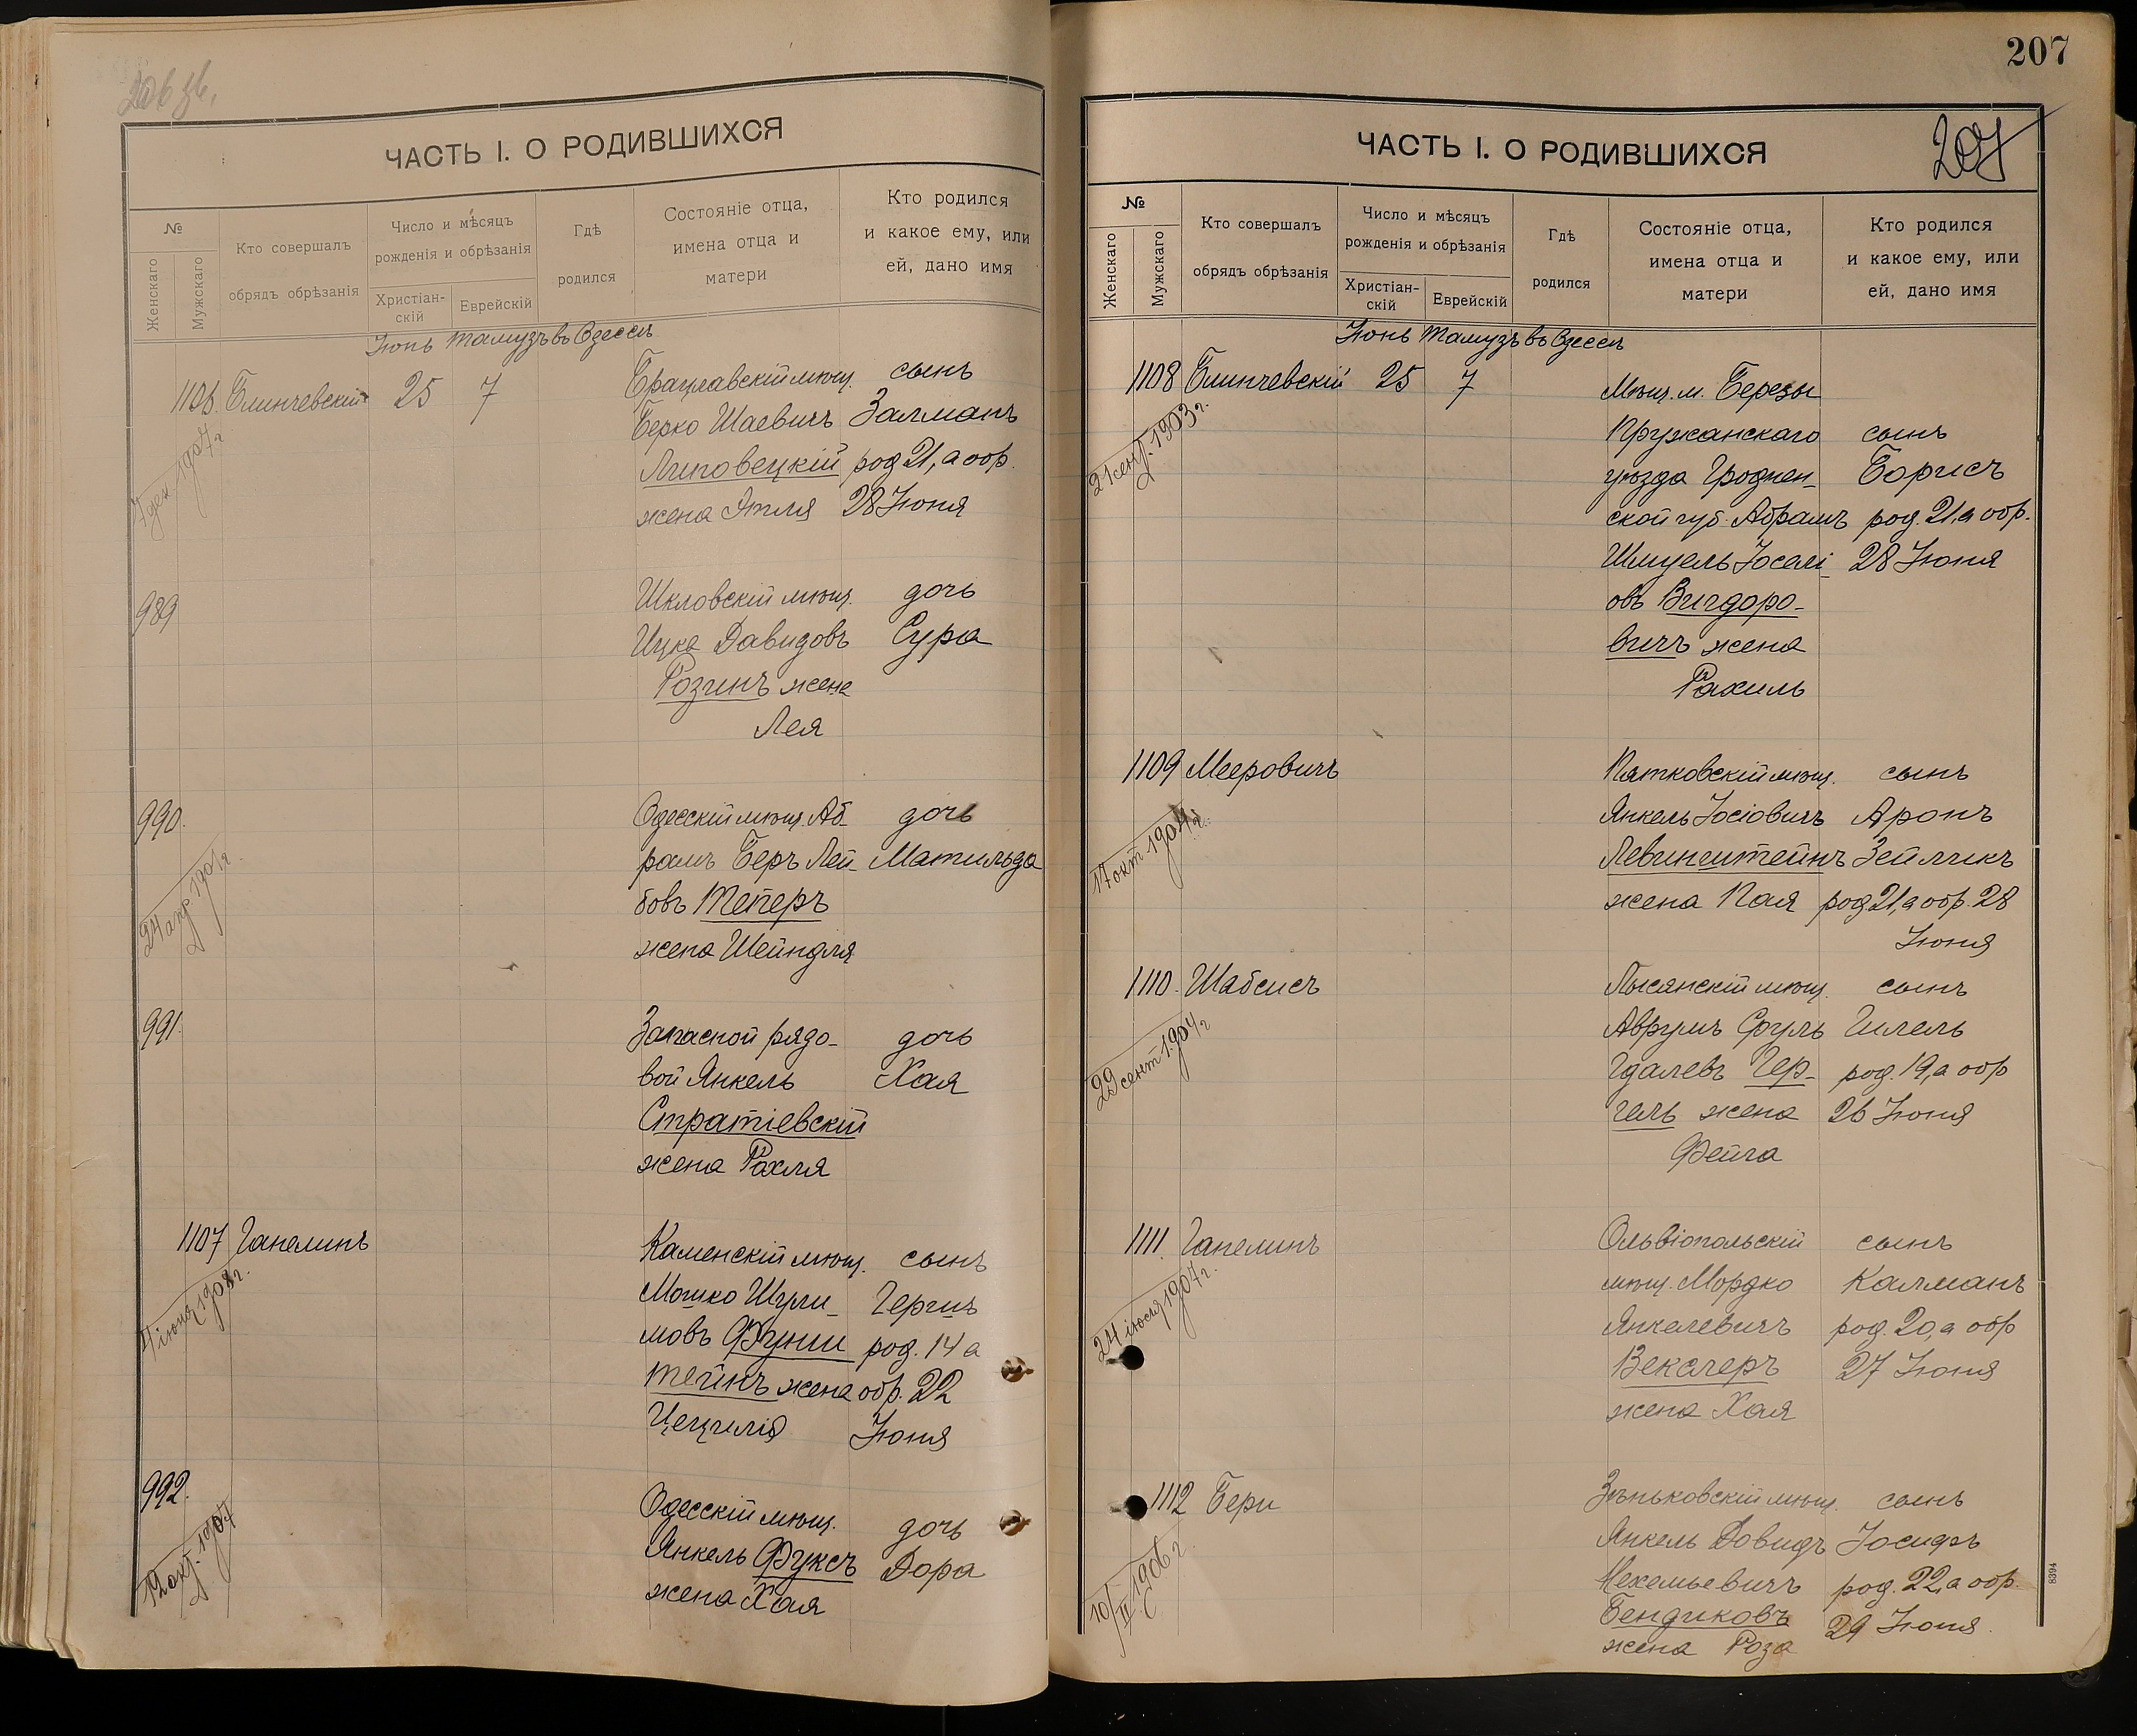 206 зв.
ЧАСТЬ I. О РОДИВШИХСЯ
№
Женскаго
Мужскаго
Кто совершалъ
обрядъ обрѣзанія
Число и мѣсяцъ
рожденія и обрѣзанія
Христіан-
скій
Еврейскій
Гдѣ
родился
Состояніе отца,
имена отца и
матери
Кто родился
и какое ему, или
ей, дано имя
Іюнь Тамузъ въ Одессѣ
1106. Блинчевскій 25 7 Брацлавскій мѣщ. сынъ
Берко Шаевичъ Залманъ
Липовецкій род 21, а обр.
жена Этля 28 Іюня
7 дек. 1907 г
989 Шкловскій мѣщ. дочь
Ицка Давидовъ Сура
Розинъ жена
Лея
990. Одесскій мѣщ. Аб- дочь
рамъ Беръ Лей- Матильда
бовъ Теперъ
жена Шейндля
24 апр 1901 г.
991. Запасной рядо- дочь
вой Янкель Хая
Стратіевскій
жена Рахля
1107 Ганелинъ Каменскій мѣщ. сынъ
Мошко Шули- Гершъ
мовъ Фунш род. 14 а
тейнъ жена обр. 22
Цецилія Іюня
4 іюня 1908 г.
992. Одесскій мѣщ. дочь
Янкель Фуксъ Дора
жена Хая
12 окт. 1907
207
ЧАСТЬ I. О РОДИВШИХСЯ
207
№
Женскаго
Мужскаго
Кто совершалъ
обрядъ обрѣзанія
Число и мѣсяцъ
рожденія и обрѣзанія
Христіан-
скій
Еврейскій
Гдѣ
родился
Состояніе отца,
имена отца и
матери
Кто родился
и какое ему, или
ей, дано имя
Іюнь Тамузъ въ Одессѣ
1108 Блинчевскій 25 7 Мѣщ. м. Березы
Пружанскаго сынъ
уѣзда Гроднен- Борисъ
ской губ. Абрамъ род. 21, а обр.
Шмуель Іоселі- 28 Іюня
овъ Вигдоро-
вичъ жена
Рахиль
21 сент. 1903 г.
1109 Мееровичъ Пятковскій мѣщ. сынъ
Янкель Іосіовичъ Аронъ
Левинштейнъ Зейликъ
жена Пая род 21, а обр. 28
Іюня
17 окт 1904 г.
1110. Шабсисъ Лысянскій мѣщ. сынъ
Аврумъ Сруль Гилель
Гдалевъ Гер- род. 19, а обр
гель жена 26 Іюня
Фейга
22 сент 1904 г
1111. Ганелинъ Ольвіопольскій сынъ
мѣщ. Мордко Калманъ
Янкелевичъ род. 20, а обр
Векслеръ 27 Іюня
жена Хая
24 іюля 1907 г.
1112 Бери Зѣньковскій мѣщ. сынъ
Янкель Довидъ Іосифъ
Мехельевичъ род. 22, а обр.
Бендиковъ 29 Іюня.
жена Роза
10/II 1906 г.
8394